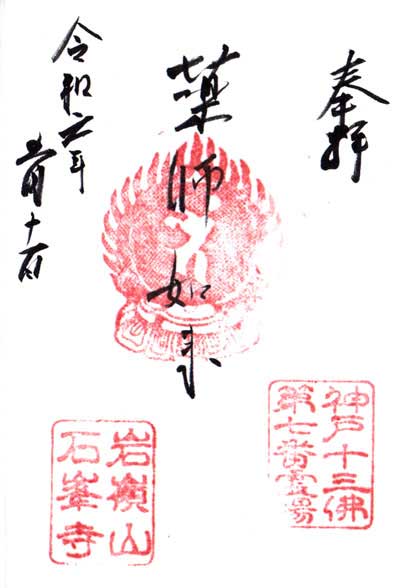 奉拝
薬師如来
令和元年
十一日
神戸十三佛
第七番霊場
岩嶺山
石峯寺